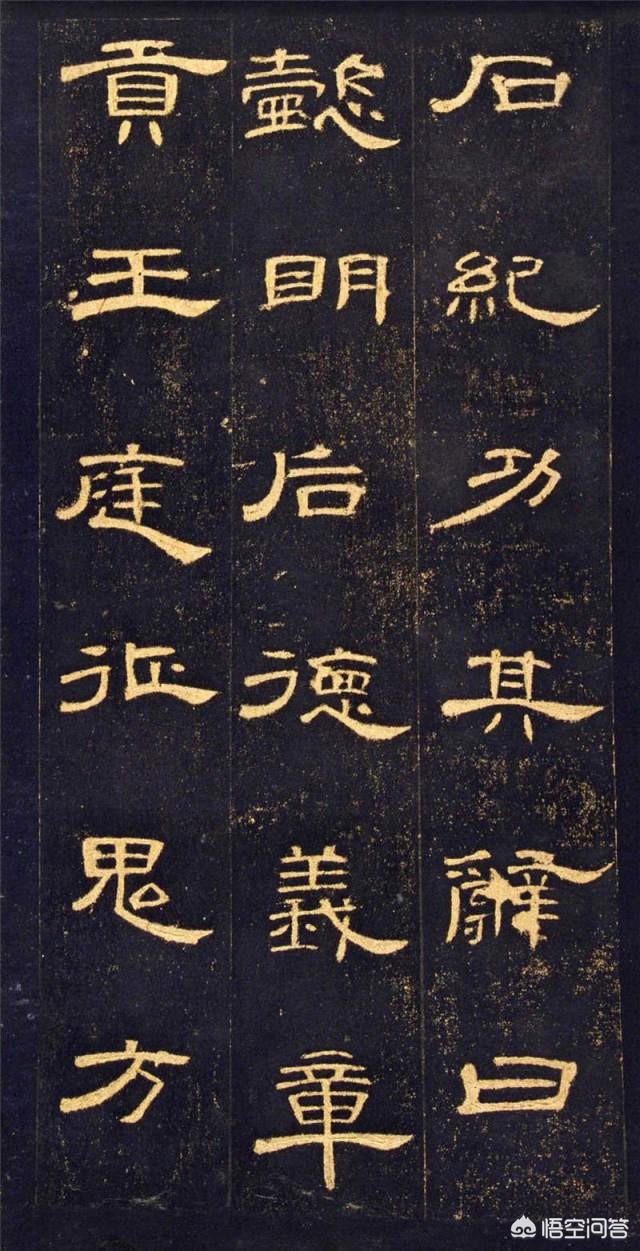 石紀功其辭曰
懿明后德義章
貢王庭征鬼方
悟空问答